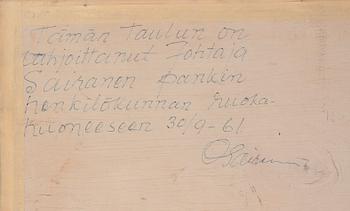 Tämän taulun on
lahjoittanut Johtaja
Saikanen pankin
henkilökunnan ruoka-
huoneeseen 30/9-61